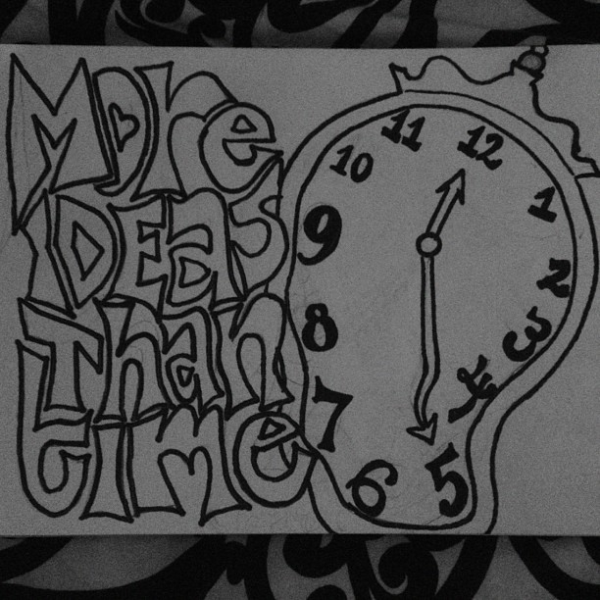 More
IDEAS
Than
time
11
12
10
1
9
2
8
3
4
7
6
5